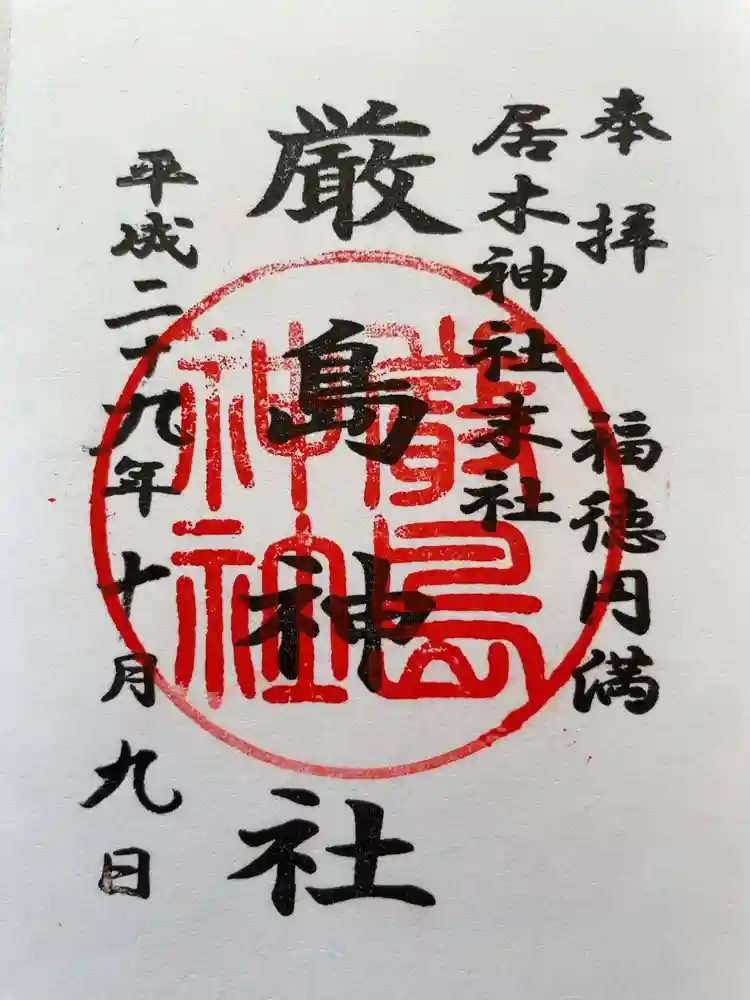 奉拝 福徳円満
居木神社末社
厳島神社
平成二十九年十月九日
嚴島神社